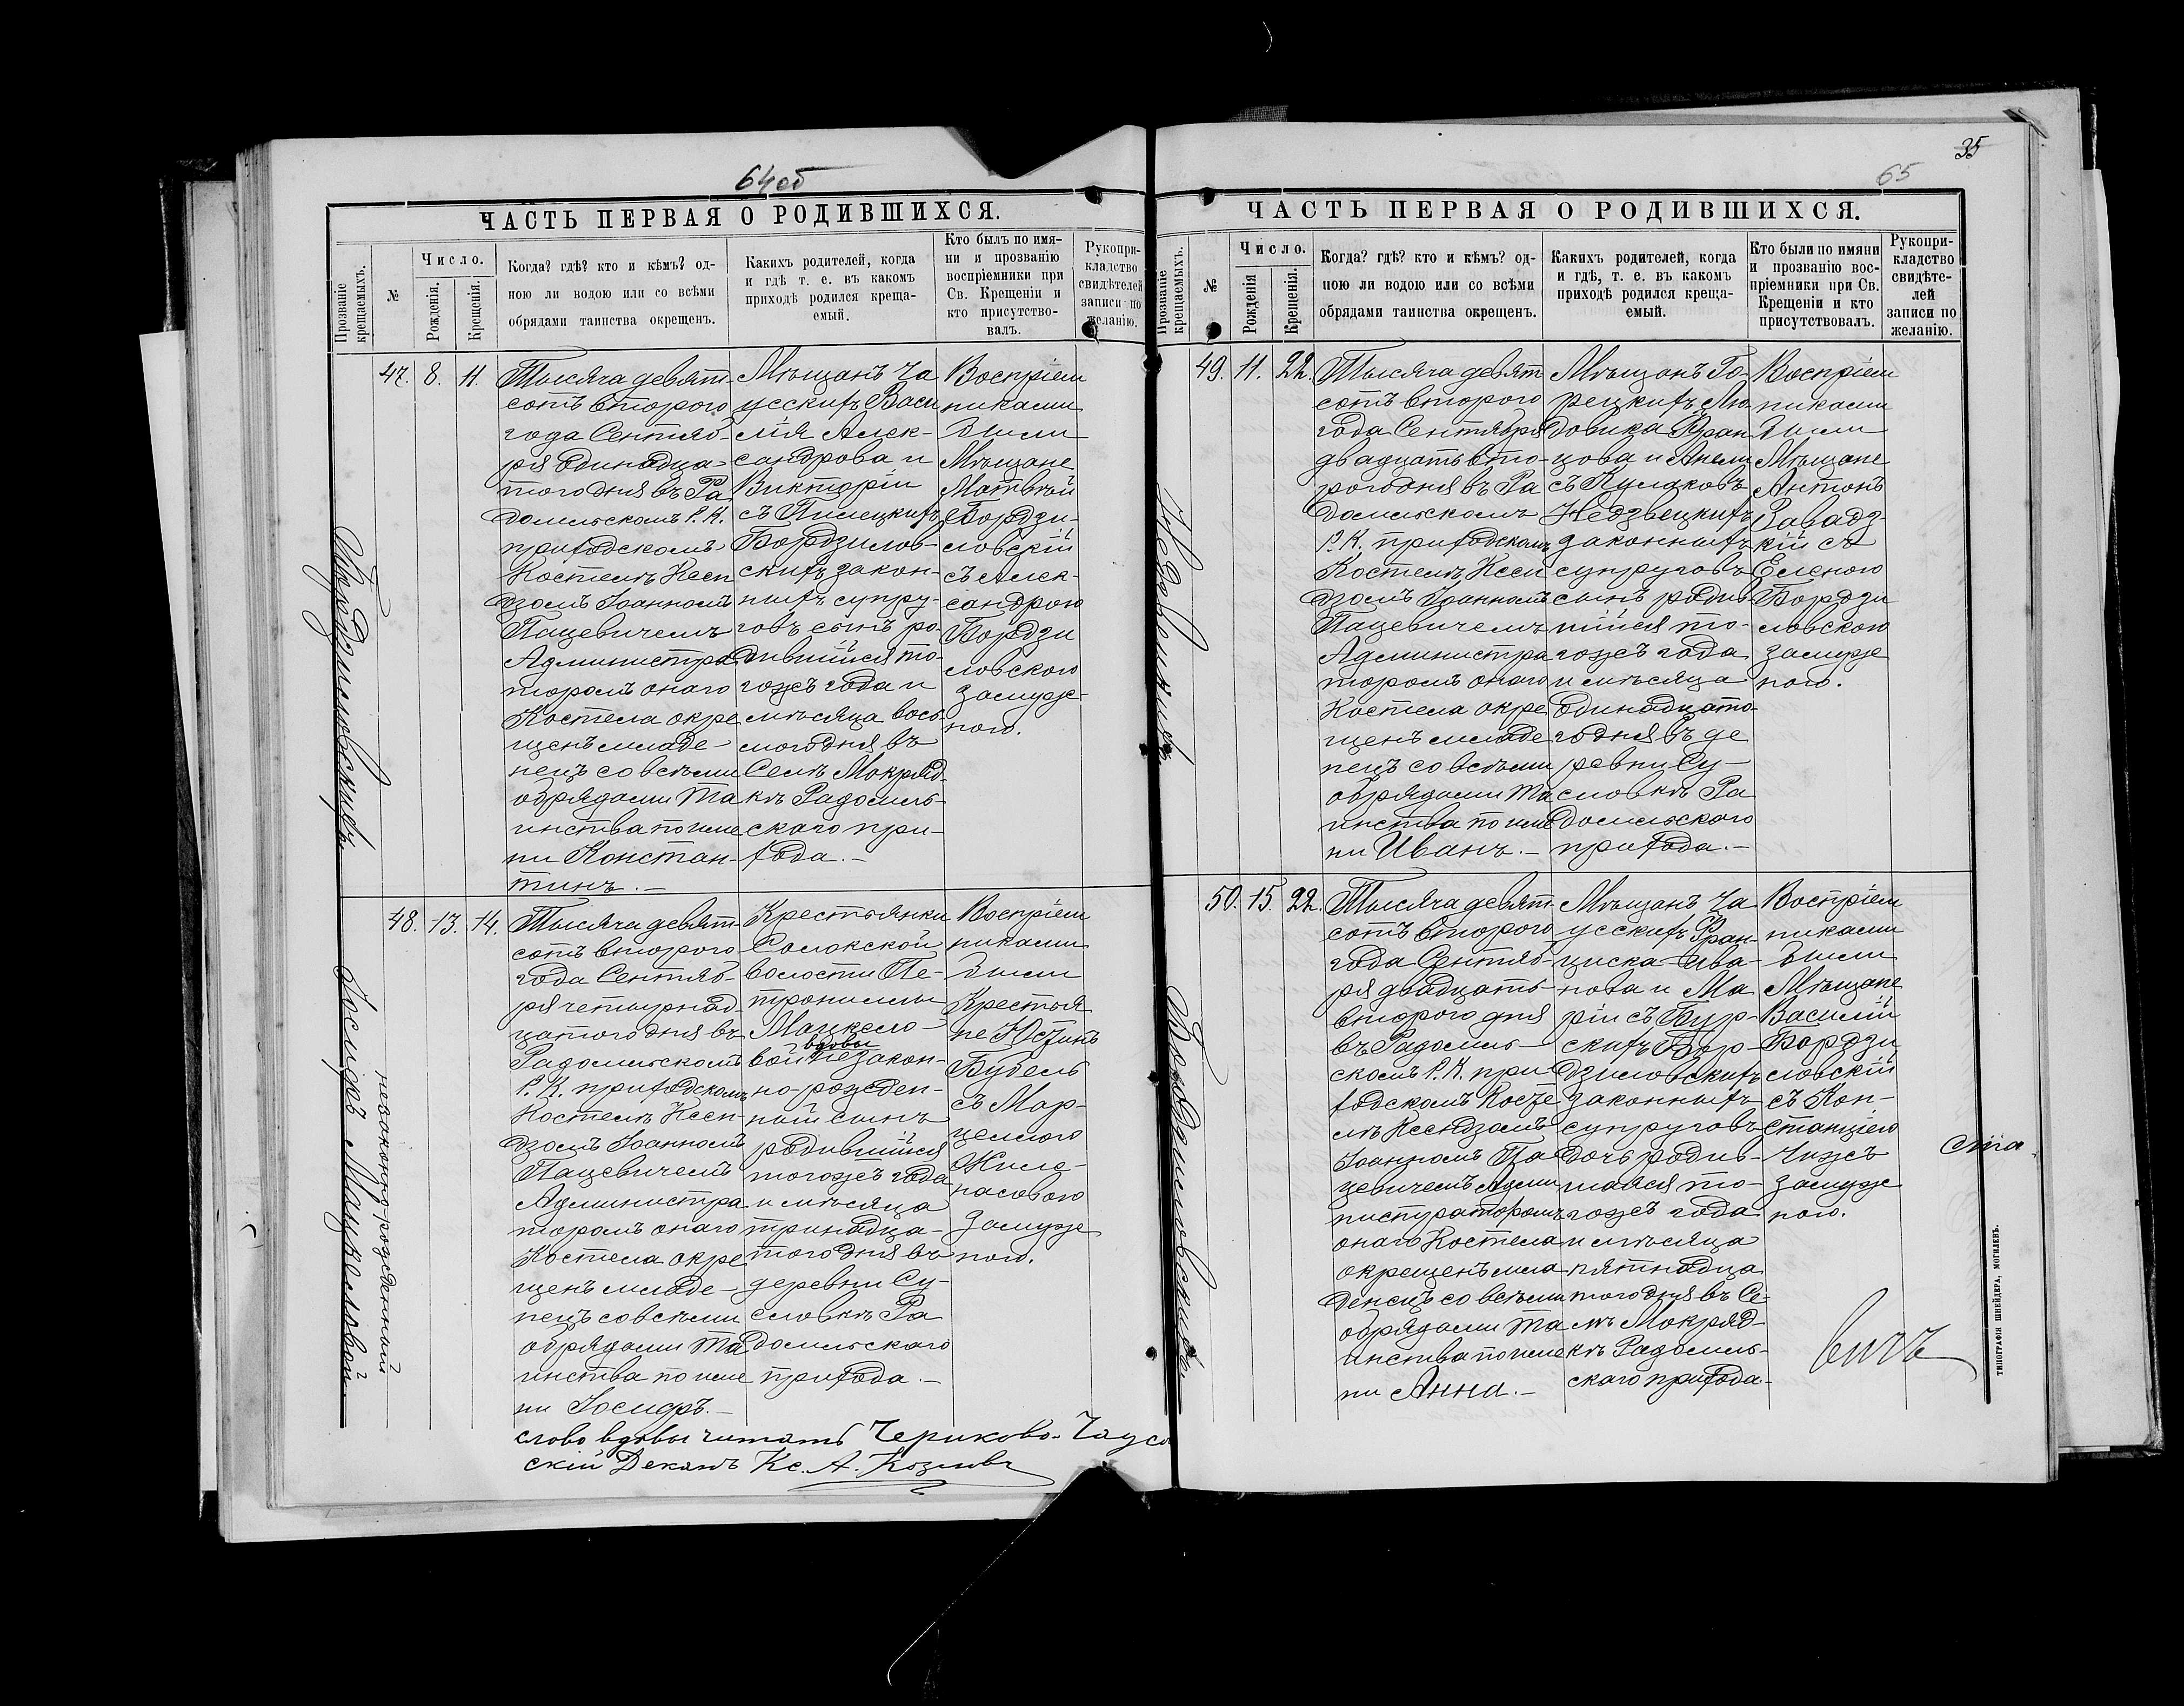 64об
ЧАСТЬ ПЕРВАЯ О РОДИВШИХСЯ.
Прозваніе крещаемыхъ.
№
Число.
Рожденія.
Крещенія.
Когда? гдѣ? кто и кѣмъ? од-
ною ли водою или со всѣми
обрядами таинства окрещенъ.
Какихъ родителей, когда
и гдѣ т. е. въ какомъ
приходѣ родился креща-
емый.
Кто былъ по имя-
ни и прозванію
воспріемники при
Св. Крещеніи и
кто присутство-
валъ.
Рукопри-
кладство
свидѣтелей
записи по
желанію.
Бордзиловскихъ
47. 8. 11.
Тысяча девят-
сотъ второго
года Сентяб-
ря одинадца-
того дня въ Ра
домльскомъ Р. К.
приходскомъ
Костелѣ Ксен
дзомъ Іоанномъ
Пацевичемъ
Администра
торомъ онаго
Костела окре
щенъ младе-
нецъ со всѣми
обрядами Та
инства по име
ни Констан-
тинъ.-
Мѣщанъ Ча
усскихъ Васи
лія Алек-
сандрова и
Викторіи
съ Пилецкихъ
Бордзилов-
скихъ закон-
ныхъ супру-
говъ сынъ ро-
дившійся то-
гожъ года и
мѣсяца вось
мого дня въ
Селѣ Мокряд-
кѣ Радомль-
скаго при-
хода.-
Воспріем
никами
были
Мѣщане
Матвѣй
Бордзи-
ловскій
съ Алек-
сандрою
Бордзи
ловскою
замуж-
ною.
Іосифъ Мацкеловой
незаконно-рожденный
48. 13. 14.
Тысяча девят-
сотъ второго
года Сентяб-
ря четырнад-
цатого дня въ
Радомльскомъ
Р. К. приходскомъ
Костелѣ Ксен-
дзомъ Іоанномъ
Пацевичемъ
Администра
торомъ онаго
Костела окре
щенъ младе-
нецъ со всѣми
обрядами Та
инства по име
ни Іосифъ.-
Крестьянки
Солокской
волости Пе-
тронилы
Мацкело-
вдовы
вой незакон-
но-рожден-
ный сынъ
родившійся
тогожъ года
и мѣсяца
тринадца-
того дня въ
деревни Су-
словкѣ Ра
домльскаго
прихода.-
Воспріем
никами
были
Крестья
не Юстинъ
Будель
съ Мар-
целлою
Жиле-
насовою
замуж
ною.
слово вдовы читать Чериково-Чаус
скій Деканъ Кс. А. Козловъ
35
65
ЧАСТЬ ПЕРВАЯ О РОДИВШИХСЯ.
Прозваніе крещаемыхъ.
№
Число.
Рожденія
Крещенія.
Когда? гдѣ? кто и кѣмъ? од-
ною ли водою или со всѣми
обрядами таинства окрещенъ.
Какихъ родителей, когда
и гдѣ, т. е. въ какомъ
приходѣ родился креща-
емый.
Кто были по имяни
и прозванію вос-
пріемники при Св.
Крещеніи и кто
присутствовалъ.
Рукопри-
кладство
свидѣте-
лей
записи по
желанію.
49. 11. 22.
Тысяча девят
сотъ второго
года Сентября
двадцать вто-
рого дня въ Ра
домльскомъ
Р. К. приходскомъ
Костелѣ Ксен
дзомъ Іоанномъ
Пацевичемъ
Администра
торомъ онаго
Костела окре
щенъ младе
нецъ со всѣми
обрядами Та
инства по име
ни Иванъ.-
Мѣщанъ Го-
рецкихъ Лю-
довика Фран
цова и Анели
съ Кулаковъ
Недзвецкихъ
законныхъ
супруговъ
сынъ родив
шійся то-
гожъ года
и мѣсяца
одинадцато-
го дня въ де
ревни Су-
словкѣ Ра
домльскаго
прихода.-
Воспріем
никами
были
Мѣщане
Антонъ
Завадз-
кій съ
Еленою
Бордзи
ловскою
замуж
ною.
Бордзиловскихъ.
50. 15. 22.
Тысяча девят-
сотъ второго
года Сентяб-
ря двадцать
второго дня
въ Радомль-
скомъ Р. К. при-
ходскомъ Косте
лѣ Ксендзомъ
Іоанномъ Па
цевичемъ Адми
нистраторомъ
онаго Костела
окрещенъ мла
денецъ со всѣми
обрядами Та
инства по име
ни Анна.-
Мѣщанъ Ча
усскихъ Фран-
циска Ива-
нова и Ма
ріи съ Бур-
скихъ Бор-
дзиловскихъ
законныхъ
супруговъ
дочь родив-
шаяся то-
гожъ года
и мѣсяца
пятнадца
того дня въ Се-
лѣ Мокряд-
кѣ Радомль-
скаго прихода-
Воспріем
никами
были
Мѣщане
Василій
Бордзи
ловскій
съ Кон-
станціею
Чижъ
замуж
ною.
вичъ
ТИПОГРАФІЯ ШНЕЙДЕРА, МОГИЛЕВЪ.